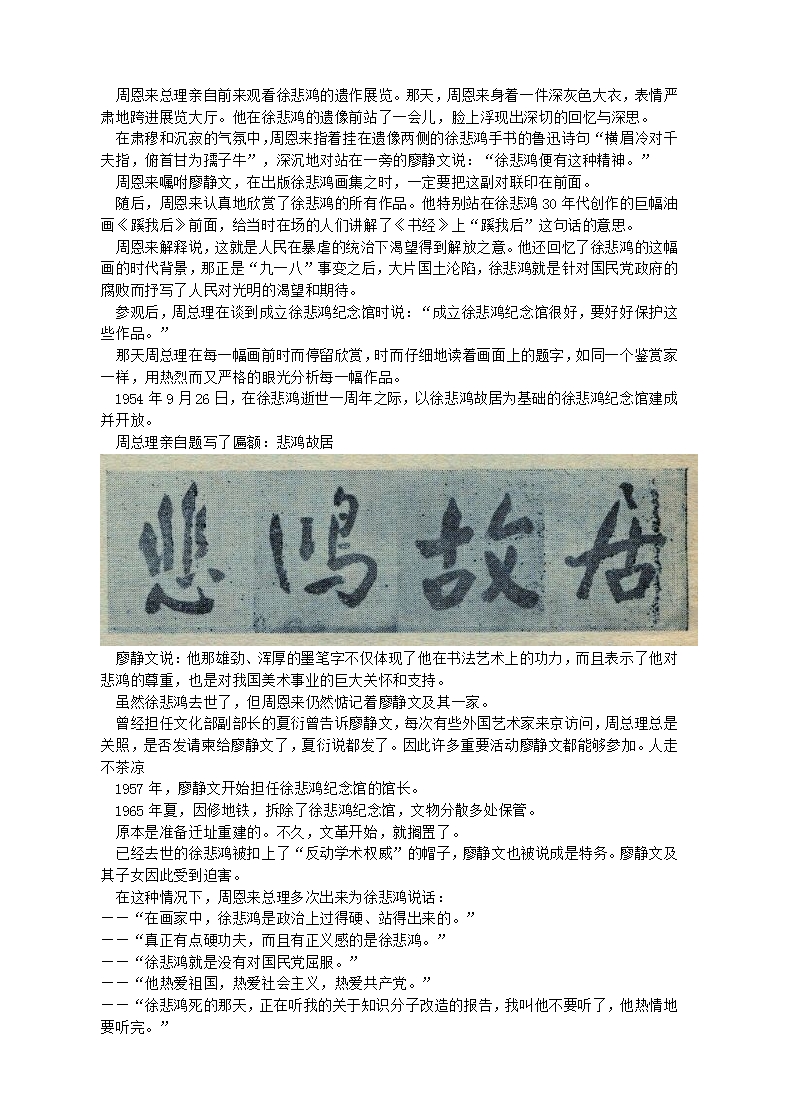 周恩来总理亲自前来观看徐悲鸿的遗作展览。那天，周恩来身着一件深灰色大衣，表情严
肃地跨进展览大厅。他在徐悲鸿的遗像前站了一会儿，脸上浮现出深切的回忆与深思。
在肃穆和沉寂的气氛中，周恩来指着挂在遗像两侧的徐悲鸿手书的鲁迅诗句“横眉冷对千
夫指，俯首甘为孺子牛”，深沉地对站在一旁的廖静文说：“徐悲鸿便有这种精神。”
周恩来嘱咐廖静文，在出版徐悲鸿画集之时，一定要把这副对联印在前面。
随后，周恩来认真地欣赏了徐悲鸿的所有作品。他特别站在徐悲鸿 30 年代创作的巨幅油
画《蹊我后》前面，给当时在场的人们讲解了《书经》上“蹊我后”这句话的意思。
周恩来解释说，这就是人民在暴虐的统治下渴望得到解放之意。他还回忆了徐悲鸿的这幅
画的时代背景，那正是“九一八”事变之后，大片国土沦陷，徐悲鸿就是针对国民党政府的
腐败而抒写了人民对光明的渴望和期待。
参观后，周总理在谈到成立徐悲鸿纪念馆时说：“成立徐悲鸿纪念馆很好，要好好保护这
些作品。”
那天周总理在每一幅画前时而停留欣赏，时而仔细地读着画面上的题字，如同一个鉴赏家
一样，用热烈而又严格的眼光分析每一幅作品。
1954 年 9 月 26 日，在徐悲鸿逝世一周年之际，以徐悲鸿故居为基础的徐悲鸿纪念馆建成
并开放。
周总理亲自题写了匾额：悲鸿故居
悲鸿故居
廖静文说：他那雄劲、浑厚的墨笔字不仅体现了他在书法艺术上的功力，而且表示了他对
悲鸿的尊重，也是对我国美术事业的巨大关怀和支持。
虽然徐悲鸿去世了，但周恩来仍然惦记着廖静文及其一家。
曾经担任文化部副部长的夏衍曾告诉廖静文，每次有些外国艺术家来京访问，周总理总是
关照，是否发请柬给廖静文了，夏衍说都发了。因此许多重要活动廖静文都能够参加。人走
不茶凉
1957 年，廖静文开始担任徐悲鸿纪念馆的馆长。
1965 年夏，因修地铁，拆除了徐悲鸿纪念馆，文物分散多处保管。
原本是准备迁址重建的。不久，文革开始，就搁置了。
已经去世的徐悲鸿被扣上了“反动学术权威”的帽子，廖静文也被说成是特务。廖静文及
其子女因此受到迫害。
在这种情况下，周恩来总理多次出来为徐悲鸿说话：
——“在画家中，徐悲鸿是政治上过得硬、站得出来的。”
——“真正有点硬功夫，而且有正义感的是徐悲鸿。”
——“徐悲鸿就是没有对国民党屈服。”
——“他热爱祖国，热爱社会主义，热爱共产党。”
——“徐悲鸿死的那天，正在听我的关于知识分子改造的报告，我叫他不要听了，他热情地
要听完。”